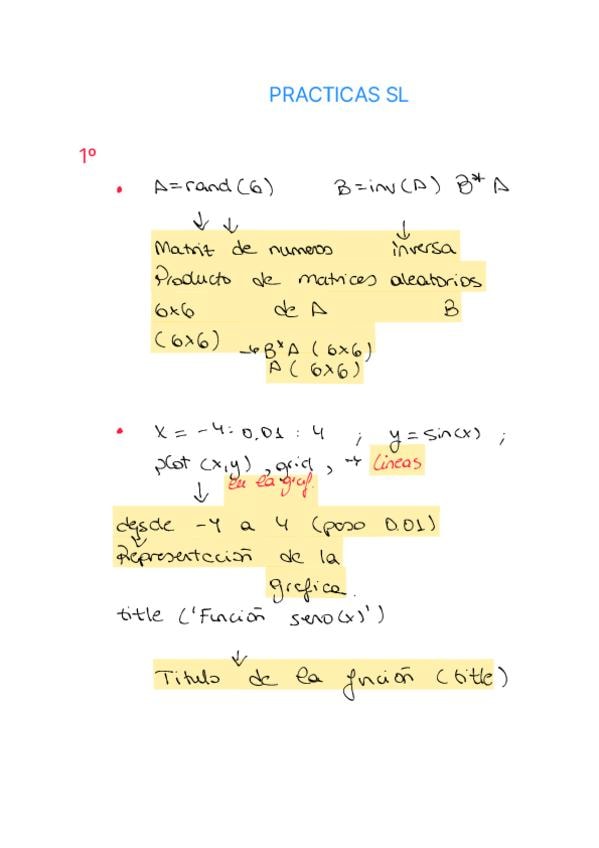 PRACTICAS SL
1º
• A=rand(6) B=inv(A) B* A
↓ ↓ ↓
Matriz de numeros inversa
Producto de matrices aleatorios
6x6 de A B
(6x6) → B*A (6x6)
A (6x6)
• X = -4:0.01:4 ; y=sin(x) ;
plot (x,y) , grid , → Lineas
↓ En la graf.
desde -4 a 4 (paso 0.01)
↓
Representación de la
grafica.
title ('Función seno(x)')
↓
Titulo de la función (title)